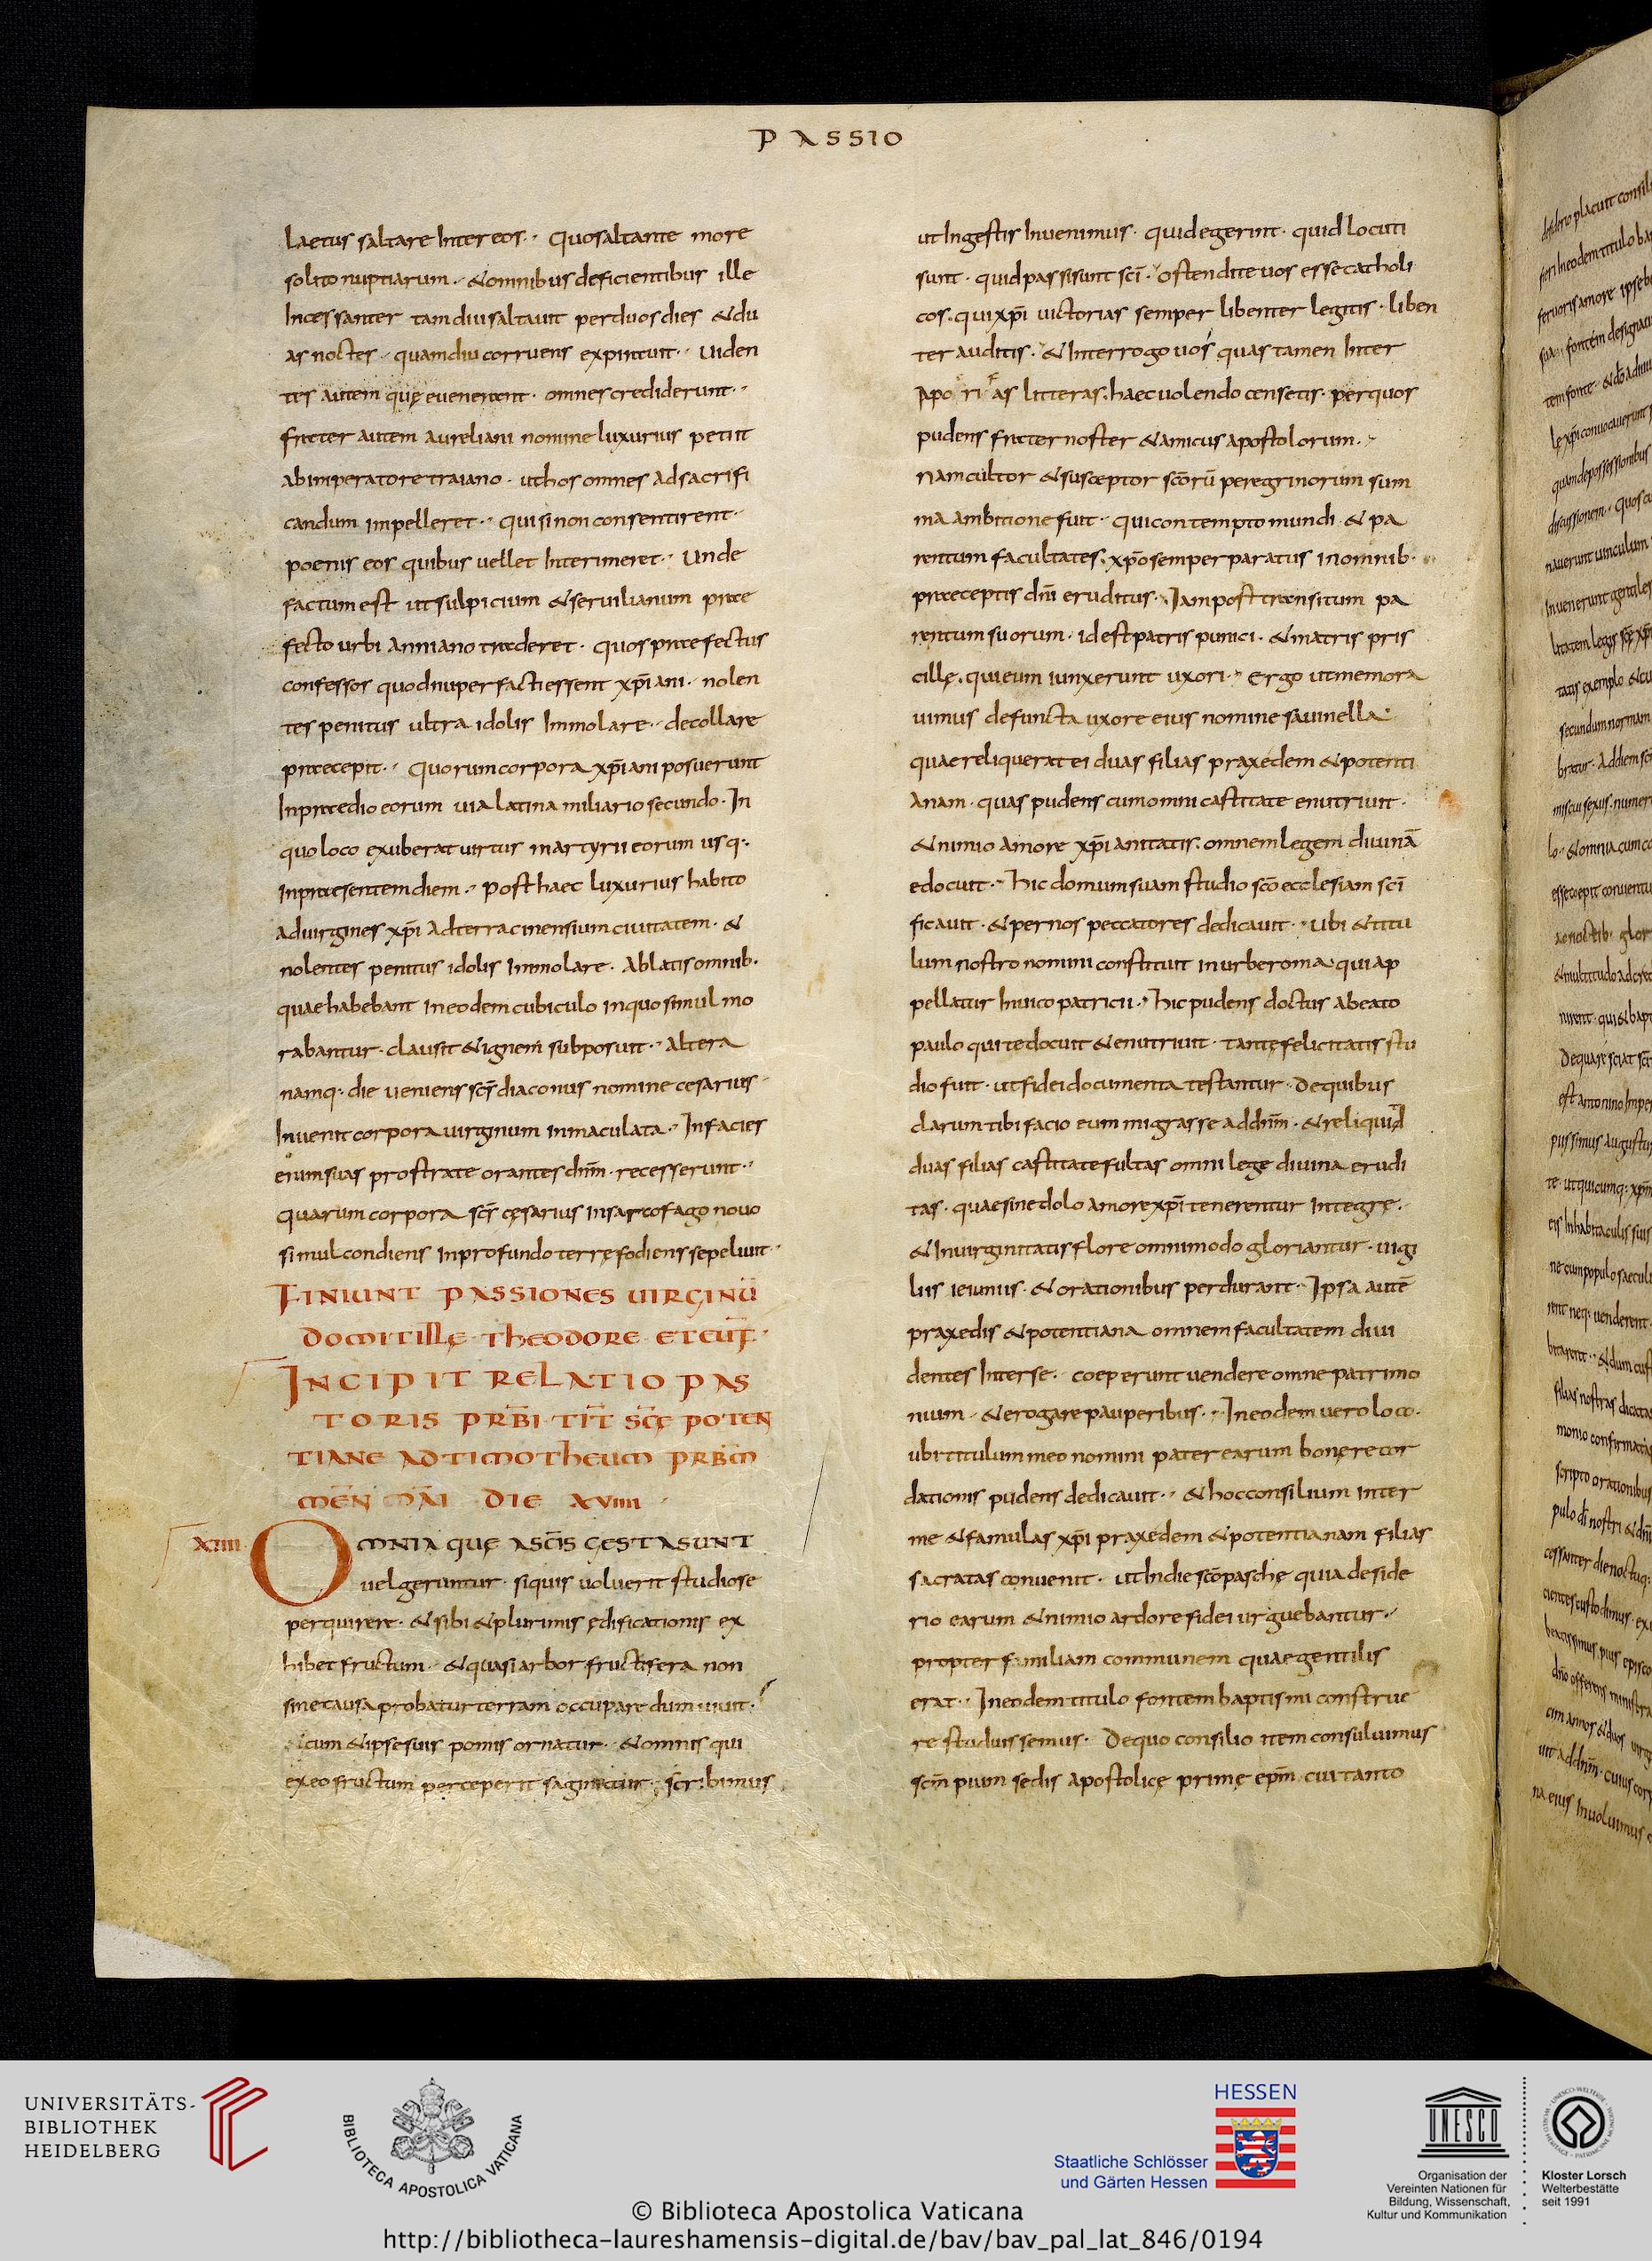 PASSIO
laetus saltare Inter eos·· Quo saltante more
solito nuptiarum·· & omnibus deficientibus ille
Incessanter tamdiu saltauit per duos dies & du
as noctes·· quamdiu corruens expirauit·· Uiden
tes autem quę euenerant· omnes crediderunt··
frater autem aureliani nomine luxurius petiit
ab imperatore traiano· ut hos omnes ad sacrifi
candum impelleret·· qui si non consentirent··
poenis eos quibus uellet Interimeret·· Unde
factum est ut sulpicium & seruilianum prae
fecto urbi anniano traderet· quos praefectus
confessos quod nuper facti essent xp̄iani·· nolen
tes penitus ultra idolis Immolare·· decollare
praecepit·· Quorum corpora xp̄iani posuerunt
In praedio eorum uia latina miliario secundo· In
quo loco exuberat uirtus martyrii eorum usq·
in praesentem diem·· Post haec luxurius habiit
ad uirgines xp̄i ad terracinensium ciuitatem· &
nolentes penitus idolis Immolare· Ablatis omnib·
quae habebant in eodem cubiculo in quo simul mo
rabantur· clausit & ignem subposuit·· Altera
namq· die ueniens sc̄s diaconus nomine cesarius
Inuenit corpora uirginum inmaculata·· In facies
enim suas prostrate orantes dn̄m· recesserunt··
quarum corpora sc̄s cęsarius in sarcofago nouo
simul condiens in profundo terrę fodiens sepeliuit··
FINIUNT PASSIONES UIRGINŪ
DOMITILLĘ THEODORE ET EUF̄·
INCIPIT RELATIO PAS
TORIS PRB̄I· TIT̄ SC̄Ę POTEN
TIANE AD TIMOTHEUM PRB̄M
MEN̄ MAĪ DIE XVIIII
XIIII OMNIA QUĘ A SC̄IS GESTA SUNT
uel geruntur· siquis uoluerit studiose
perquirere· & sibi & plurimis ędificationis ex
hibet fructum· & quasi arbor fructifera non
sine causa probatur terram occupare dum uiuit·
cum & ipse suis pomis ornatur·· & omnis qui
ex eo fructum perceperit saginatur· scribimus
ut In gestis Inuenimus· quid egerint· quid locuti
sunt· quid passi sunt sc̄i· ostendite uos esse catholi
cos· qui xp̄i uictorias semper libenter legitis· liben
ter auditis· & Interrogo uos quas tamen Inter
apo ri as litteras· haec uolendo censetis· per quos
pudens frater noster & amicus apostolorum··
nam cultor & susceptor sc̄orū peregrinorum sum
ma ambitione fuit· qui contempto mundi & pa
rentum facultates· xp̄o semper paratus in omnib·
praeceptis dn̄i eruditus· Iam post transitum pa
rentum suorum· id est patris punici· & matris pris
cillę· qui eum iunxerunt uxori·· Ergo ut memora
uimus defuncta uxore eius nomine sauinella·
quae reliquerat ei duas filias praxedem & potenti
anam· quas pudens cum omni castitate enutriuit·
& nimio amore xp̄ianitatis· omnem legem diuinā
edocuit·· Hic domum suam studio sc̄o ecclesiam sc̄i
ficauit· & per nos peccatores dedicauit·· ubi & titu
lum nostro nomini constituit in urbe roma qui ap
pellatur In uico patricii·· Hic pudens doctus a beato
paulo qui te docuit & enutriuit· tantę felicitatis stu
dio fuit· ut fidei documenta testantur· De quibus
clarum tibi facio eum migrasse ad dn̄m· & reliquid
duas filias castitate fultas omni lege diuina erudi
tas· quae sine dolo amore xp̄i tenerentur Integrę·
& In uirginitatis flore omnimodo gloriantur· uigi
liis ieiuniis· & orationibus perdurant·· Ipsa autē
praxedis & potentiana omnem facultatem diui
dentes Inter se· coeperunt uendere omne patrimo
nium·· & erogare pauperibus·· In eodem uero loco·
ubi titulum meo nomini pater earum bonę recor
dationis pudens dedicauit·· & hoc consilium Inter
me & famulas xp̄i praxedem & potentianam filias
sacratas conuenit· ut In die sc̄o paschę quia deside
rio earum & nimio ardore fidei urguebantur··
propter familiam communem quae gentilis
erat·· In eodem titulo fontem baptismi construe
re studuissemus· De quo consilio item consuluimus
sc̄m pium sedis apostolicę primę ep̄m cui tanto
UNIVERSITÄTS-
BIBLIOTHEK
HEIDELBERG
BIBLIOTECA APOSTOLICA VATICANA
HESSEN
Staatliche Schlösser
und Gärten Hessen
UNESCO
Organisation der
Vereinten Nationen für
Bildung, Wissenschaft,
Kultur und Kommunikation
Kloster Lorsch
Welterbestätte
seit 1991
© Biblioteca Apostolica Vaticana
http://bibliotheca-laureshamensis-digital.de/bav/bav_pal_lat_846/0194